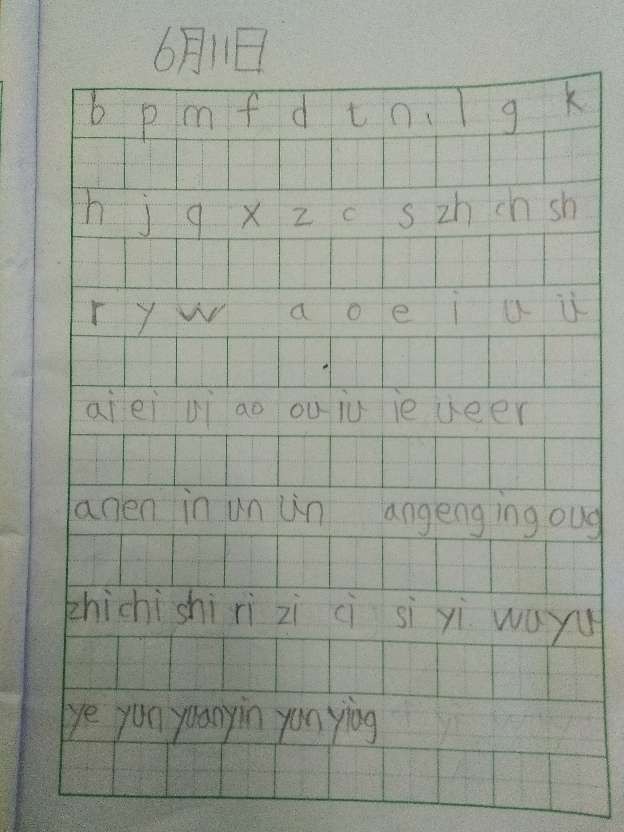 6月11日
b p m f d t n l g k
h j q x z c s zh ch sh
r y w a o e i u ü
ai ei ui ao ou iu ie üe er
an en in un ün ang eng ing oug
zhi chi shi ri zi ci si yi wu yu
ye yun yuan yin yun ying